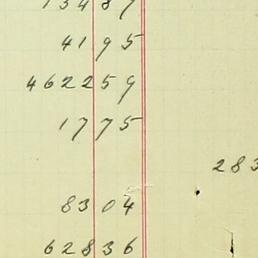 13487
4195
462259
1775
283
8304
62836